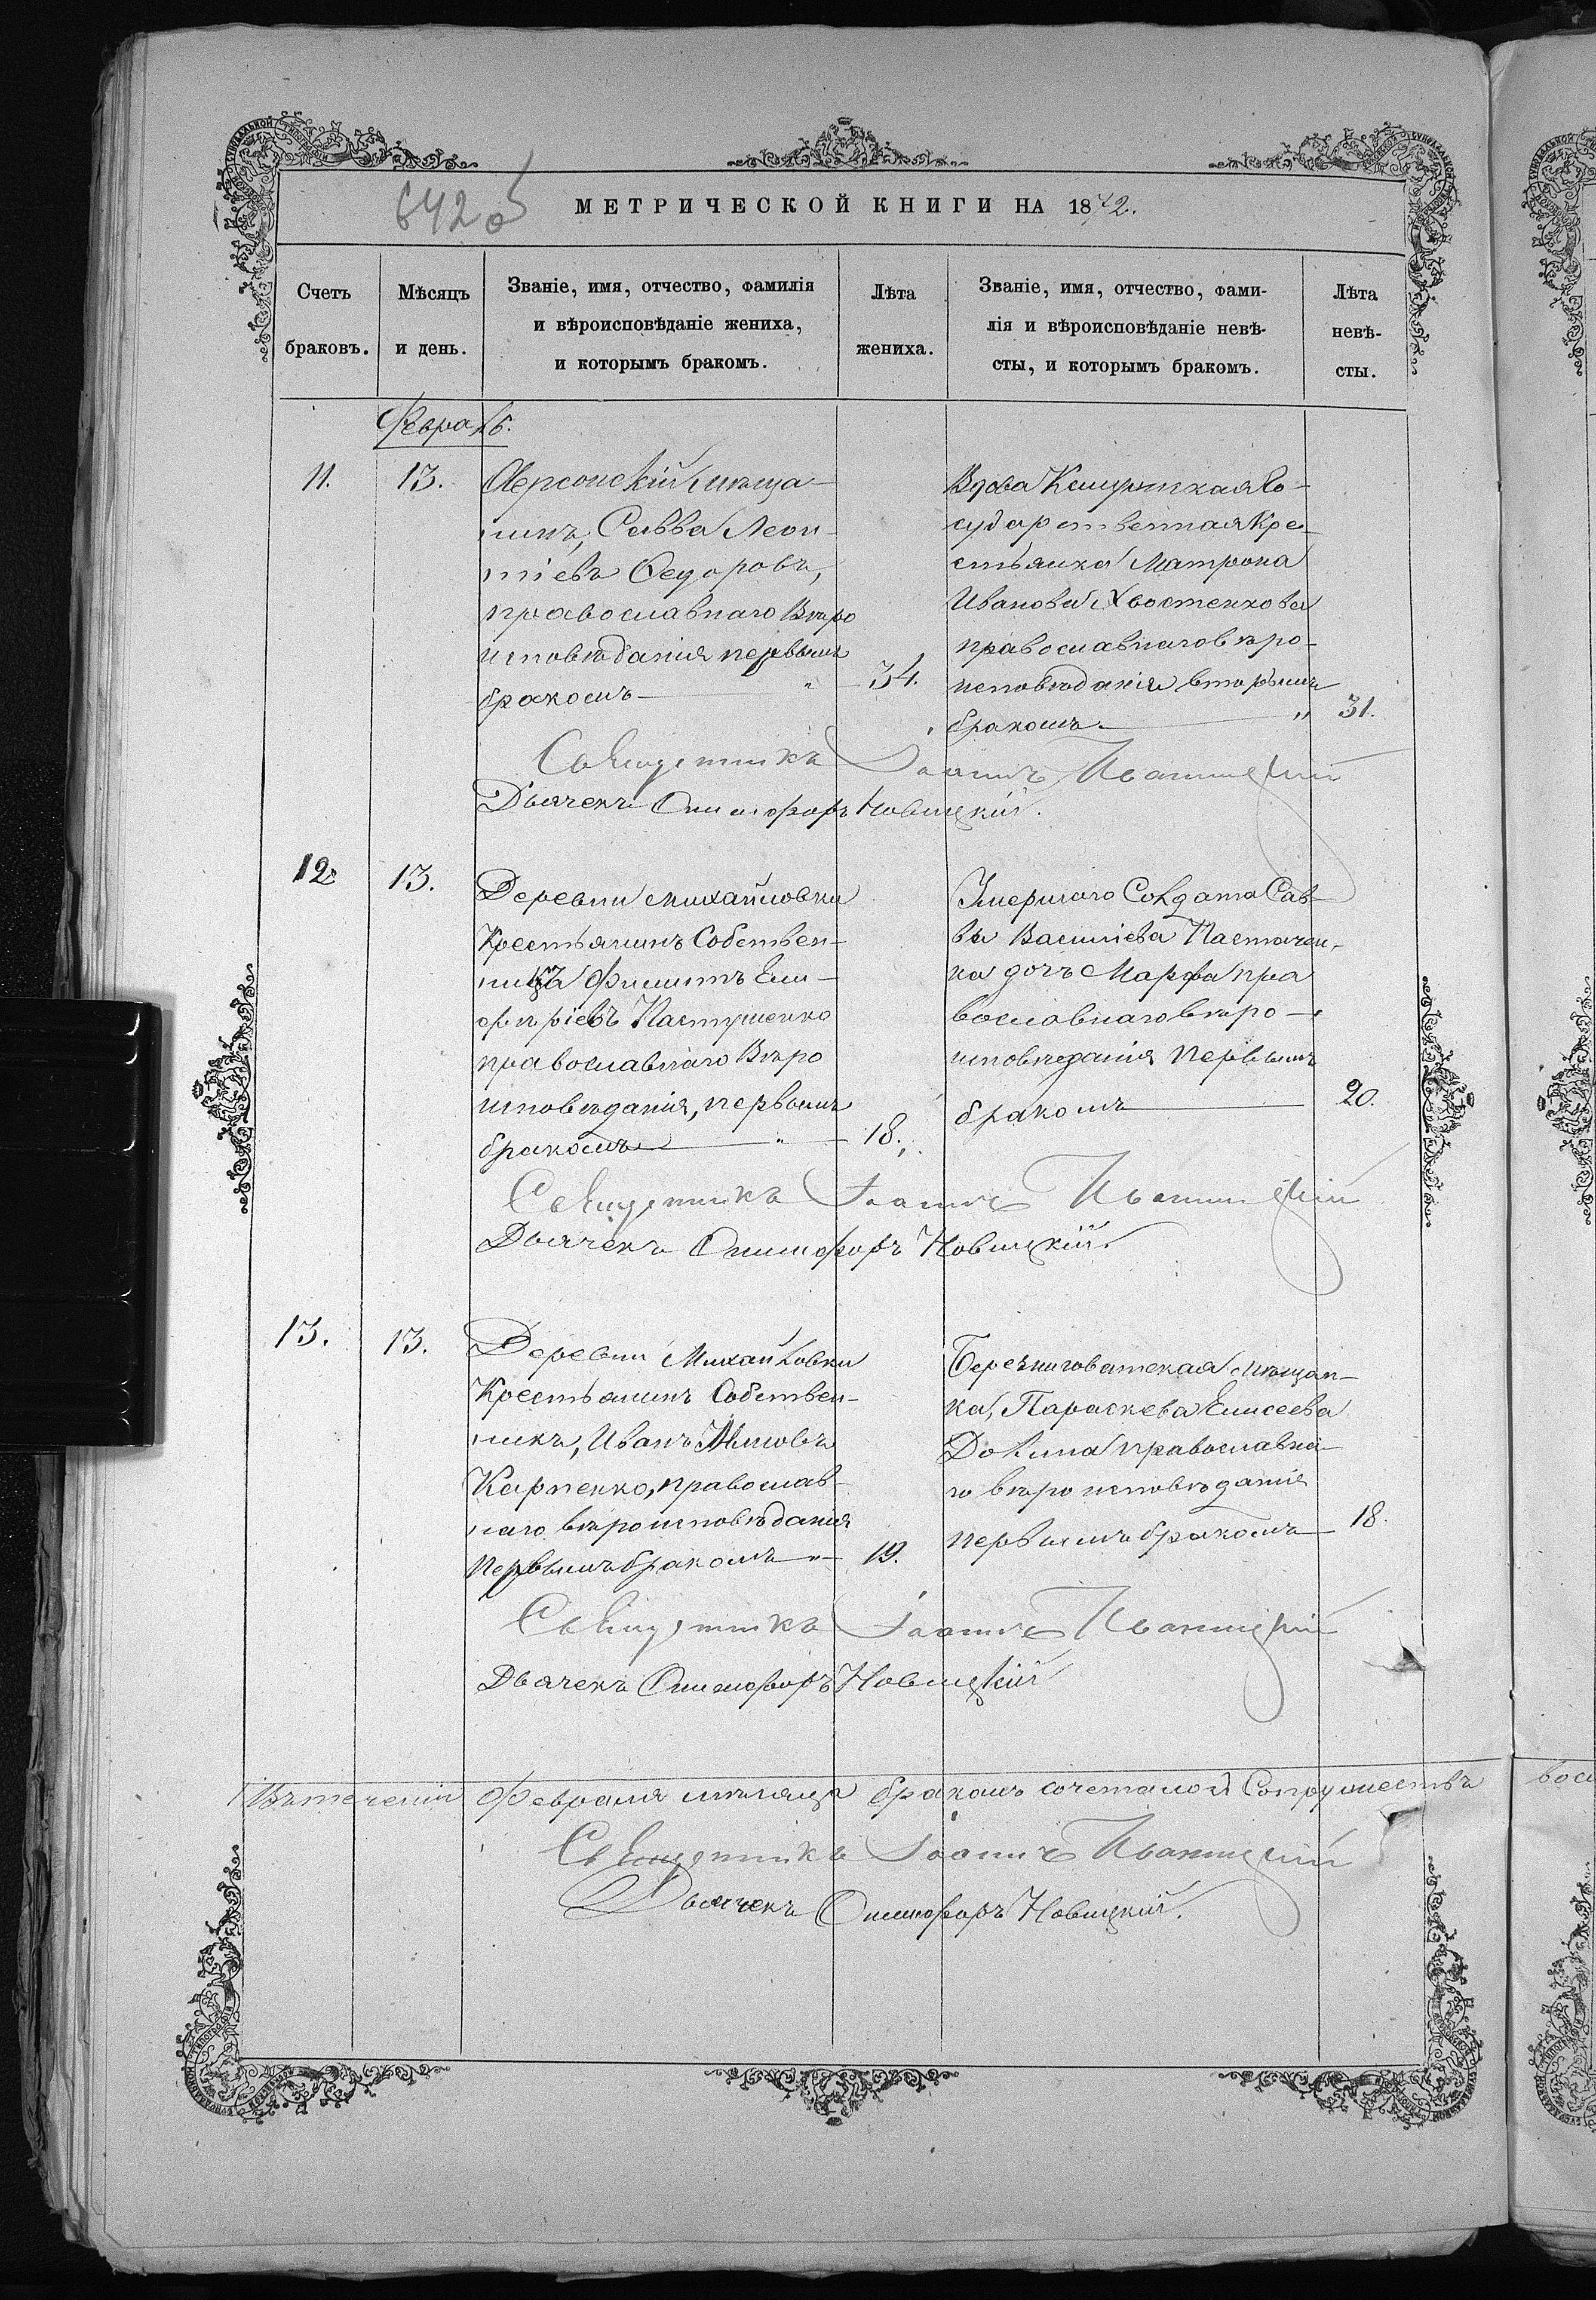 642 об
МЕТРИЧЕСКОЙ КНИГИ НА 1872.
Счетъ браковъ.
Мѣсяцъ и день.
Званіе, имя, отчество, фамилія
и вѣроисповѣданіе жениха,
и которымъ бракомъ.
Лѣта жениха.
Званіе, имя, отчество, фами-
лія и вѣроисповѣданіе невѣ-
сты, и которымъ бракомъ.
Лѣта невѣ-
сты.
Февраль.
11.
13.
Херсонскій мѣща-
нинъ, Савва Леон-
тіевъ Федоровъ,
православнаго Вѣро
исповѣданія первымъ
бракомъ
34.
Вдова Го-
сударственная Кре-
стьянка Матрона
Иванова Хвостенкова
православнаго вѣро-
исповѣданія вторымъ
бракомъ
31.
Священникъ Іоаннъ Иваницкій
Дьячекъ Онисифоръ Новицкій.
12
13.
Деревни Михайловки
Крестьянинъ Собствен-
никъ Филиппъ Ели-
феріевъ Пастушенко
православнаго Вѣро
исповѣданія, первымъ
бракомъ
18.
Умершаго Солдата Сав-
вы Василіева
ка дочь Марфа пра
вославнаго вѣро-
исповѣданія первымъ
бракомъ
20.
Священникъ Іоаннъ Иваницкій
Дьячекъ Онисифоръ Новицкій.
13.
13.
Деревни Михайловки
Крестьянинъ Собствен-
никъ, Иванъ
Карпенко, православ-
наго вѣроисповѣданія
первымъ бракомъ
19.
Березниговатская мѣщан-
ка, Параскева Елисеева
Долина православна-
го вѣроисповѣданія
первымъ бракомъ
18.
Священникъ Іоаннъ Иваницкій
Дьячекъ Онисифоръ Новицкій
Въ теченіи Февраля мѣсяца бракомъ сочеталось Супружествъ
вось
Священникъ Іоаннъ Иваницкій
Дьячекъ Онисифоръ Новицкій.